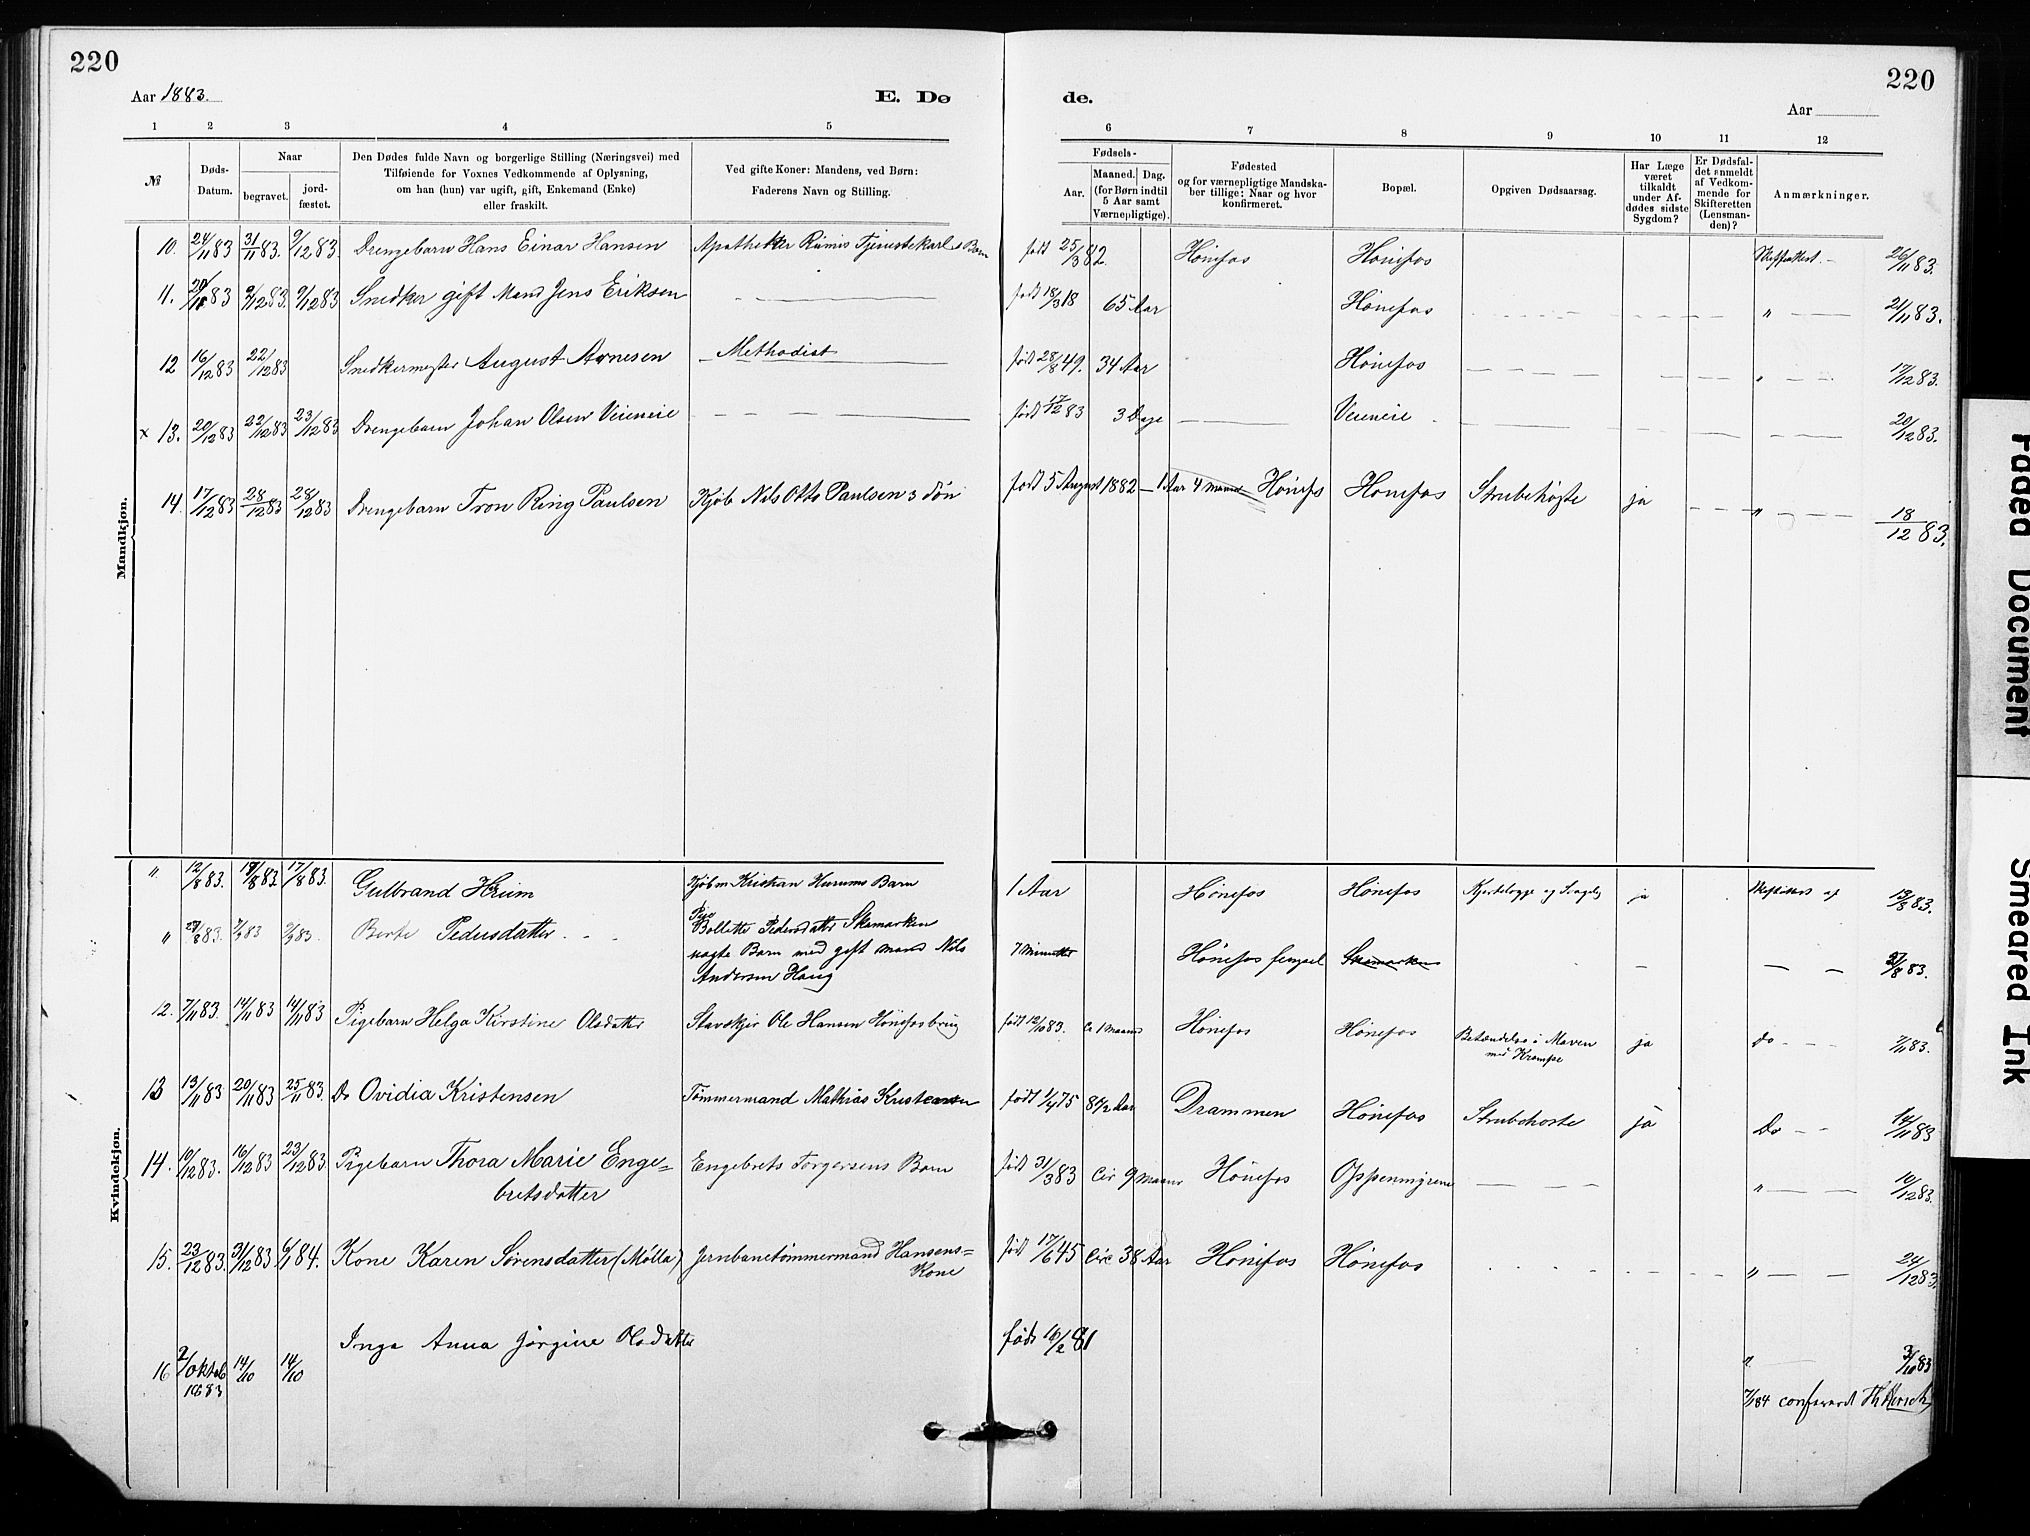 220
220
Aar 1883.
E. Dø
de.
Aar
1 2 3 4 5 6 7 8 9 10 11 12
№
Døds-Datum.
Naar
begravet.
jord-fæstet.
Den Dødes fulde Navn og borgerlige Stilling (Næringsvei) med
Tilføiende for Voxnes Vedkommende af Oplysning,
om han (hun) var ugift, gift, Enkemand (Enke)
eller fraskilt.
Ved gifte Koner: Mandens, ved Børn:
Faderens Navn og Stilling.
Fødsels-
Aar.
Maaned. Dag.
(for Børn indtil
5 Aar samt
Værnepligtige).
Fødested
og for værnepligtige Mandska-
ber tillige: Naar og hvor
konfirmeret.
Bopæl.
Opgiven Dødsaarsag.
Har Læge
været
tilkaldt
under Af-
dødes sidste
Sygdom?
Er Dødsfal-
det anmeldt
af Vedkom-
mende for
Skifteretten
(Lensman-
den)?
Anmærkninger.
Mandkjøn.
10. 24/11 83 31/11 83. 9/12 83 Drengebarn Hans Einar Hansen Apotheker Tjenestekarls Barn født 25/3 82. Hönefos Hönefos 26/11 83.
11. 83 9/12 83. 9/12 83 Snedker gift Mand Jens Eriksen født 18/3 18 65 Aar Hönefos " 21/11 83.
12 16/12 83 22/12 83 Snedkermester August Arnesen Methodist født 28/8 49. 34 Aar Hönefos " 17/12 83.
x 13. 20/12 83 22/12 83 23/12 83 Drengebarn Johan Olsen Veieneie født 17/12 83 3 Dage Veieneie 20/12 83.
14. 17/12 83 28/12 83 28/12 83 Drengebarn Tron Ring Paulsen Kjöb Nils Otto Paulsens Sön født 5 August 1882 – 1 Aar 4 Maaned Hönefos Hönefos Strubehoste ja " 18/12 83.
Kvindekjøn.
" 12/8 83. 83 17/8 83. Gulbrand Hurum Kjöbm Kristian Hurums Barn 1 Aar Hönefos Hönefos ja 13/8 83.
" 83. 83 83. Berte Pedersdatter Pige
Bollette Pedersdatter Skamarken
uægte Barn med gift Mand Nils
Andersen Haug 7 Minutter Hönefos Skamarken 83.
12. 7/11 83. 14/11 83 14/11 83 Pigebarn Helga Kirstine Olsdatter Ole Hansen Hönefosbrug født 12/10 83. Ca 1 Maaned Hönefos Hönefos Betændelse i Maven
med Krampe ja do 7/11 83.
13 13/11 83 20/11 83 25/11 83 Do Ovidia Kristensen Tömmermand Mathias Kristensen født 1/4 75 8 1/2 Aar Drammen Hönefos Strubehoste ja Do 14/11 83
14. 10/12 83. 16/12 83 23/12 83 Pigebarn Thora Marie Enge=
bretsdatter Engebret Torgersens Barn født 31/3 83 Cir 9 Maaned Hönefos Oppenmyrene " 10/12 83.
15. 23/12 83. 31/12 83 6/1 84. Kone Karen Sörensdatter (Mølla) Jernbanetömmermand Hansens=
Kone født 17/6 45 Circ 38 Aar Hönefos Hönefos " 24/12 83.
16 2/Oktob
1883 14/10 14/10 Inga Anna Jörgine Olsdatter født 16/2 81 " 3/10 83
7/1 84 confereret
Faded Document
Smeared Ink